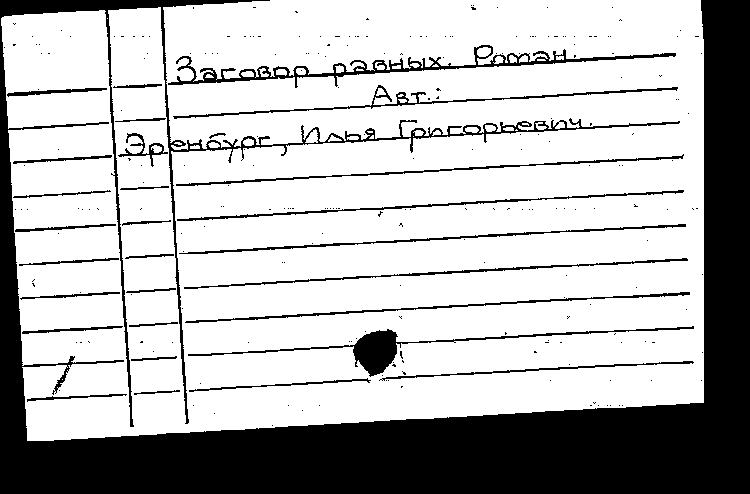 Заговор равных. Роман.
Авт.:
Эренбург, Илья Григорьевич.